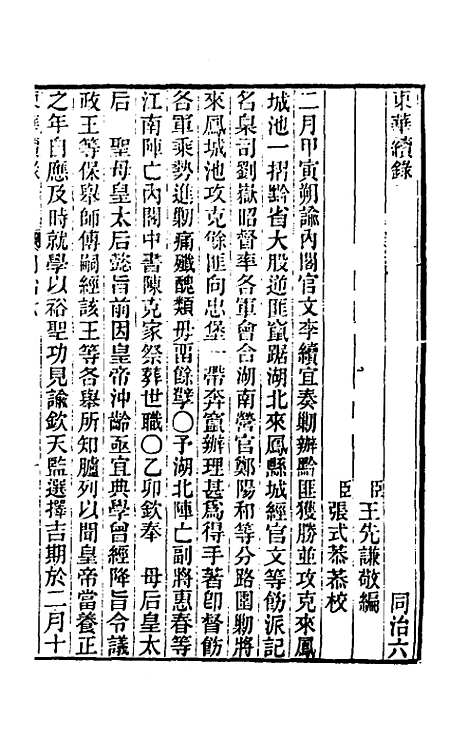 東華續錄　同治六
臣王先謙敬編
臣張式恭恭校
二月甲寅朔諭內閣官文李續宜奏勦辦黔匪獲勝並攻克來鳳
城池一摺黔省大股逆匪竄踞湖北來鳳縣城經官文等飭派記
名臬司劉嶽昭督率各軍會合湖南營官鄭陽和等分路圍勦將
來鳳城池攻克餘匪向忠堡一帶奔竄辦理甚爲得手著卽督飭
各軍乘勢進勦痛殲醜類毋畱餘孽〇予湖北陣亡副將惠春等
江南陣亡內閣中書陳克家祭葬世職〇乙卯欽奉　母后皇太
后　聖母皇太后懿旨前因皇帝沖齡亟宜典學曾經降旨令議
政王等保舉師傅嗣經該王等各舉所知臚列以聞皇帝當養正
之年自應及時就學以裕聖功見諭欽天監選擇吉期於二月十